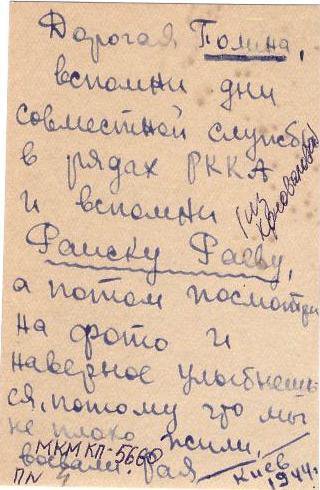 Дорогая Полина,
вспомни дни
совместной службы
в рядах РККА
и вспомни
Раиску Раеву,
а потом посмотри
на фото и
наверное улыбнешь-
ся, потому что мы
не плохо жили,
воевали. Рая
Киев
1944г.
МКМ КП-5660
4
ПN